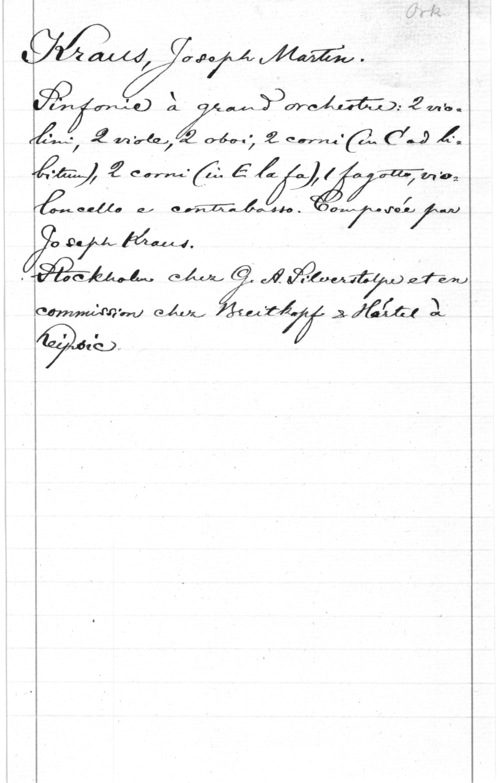 Ork.
Kraus, Joseph Martin.
Sinfonie à grand orchestre: 2 vio=
lini, 2 viole, 2 oboi, 2 corni (in C ad li=
bitum), 2 corni (in E la fa), 1 fagotto, vio=
loncello e contrabasso. Composée par
Joseph Kraus.
Stockholm chez G. A. Silverstolpe et en
commission chez Breitkopf & Härtel à
Leipsic.